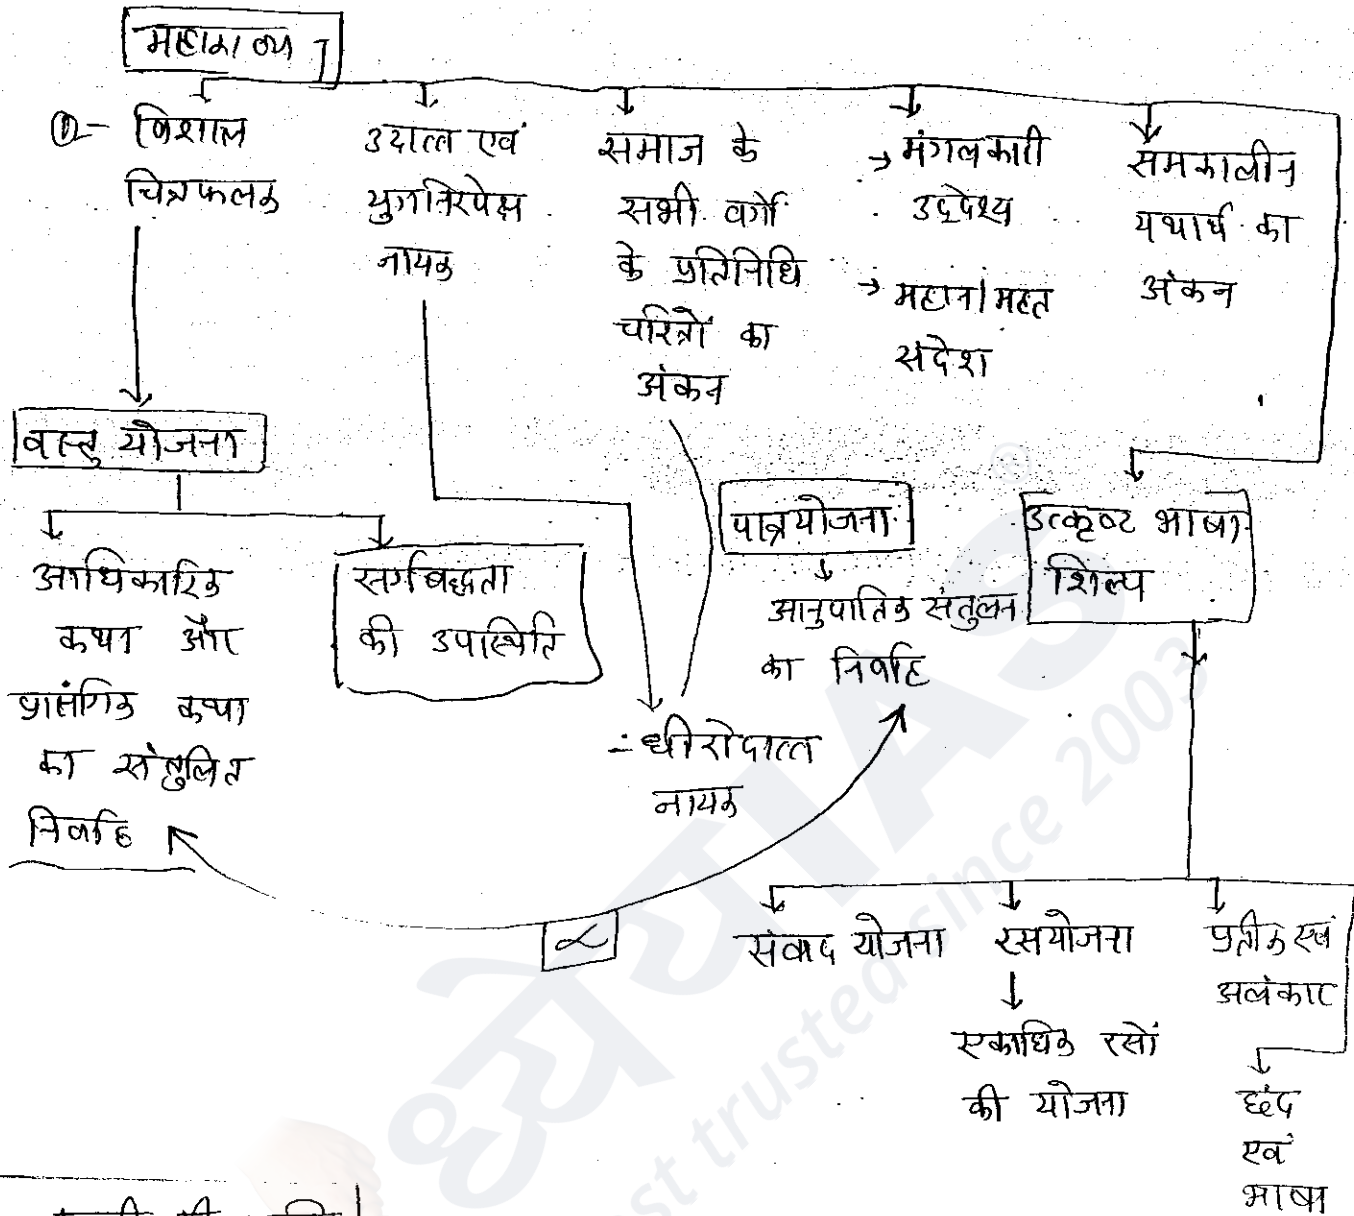 महाकाव्य
①- विशाल
चित्रफलक
उदात्त एवं
युगनिरपेक्ष
नायक
समाज के
सभी वर्गों
के प्रतिनिधि
चरित्रों का
अंकन
→ मंगलकारी
उद्देश्य
→ महान/महत
संदेश
समकालीन
यथार्थ का
अंकन
वस्तु योजना
आधिकारिक
कथा और
प्रासंगिक कथा
का संतुलित
निर्वाह
सर्गबद्धता
की उपस्थिति
धीरोदात्त
नायक
पात्रयोजना
आनुपातिक संतुलन
का निर्वाह
उत्कृष्ट भाषा
शिल्प
संवाद योजना
रसयोजना
एकाधिक रसों
की योजना
प्रतीक एवं
अलंकार
छंद
एवं
भाषा
ध्येय IAS
®
st trusted since 2003